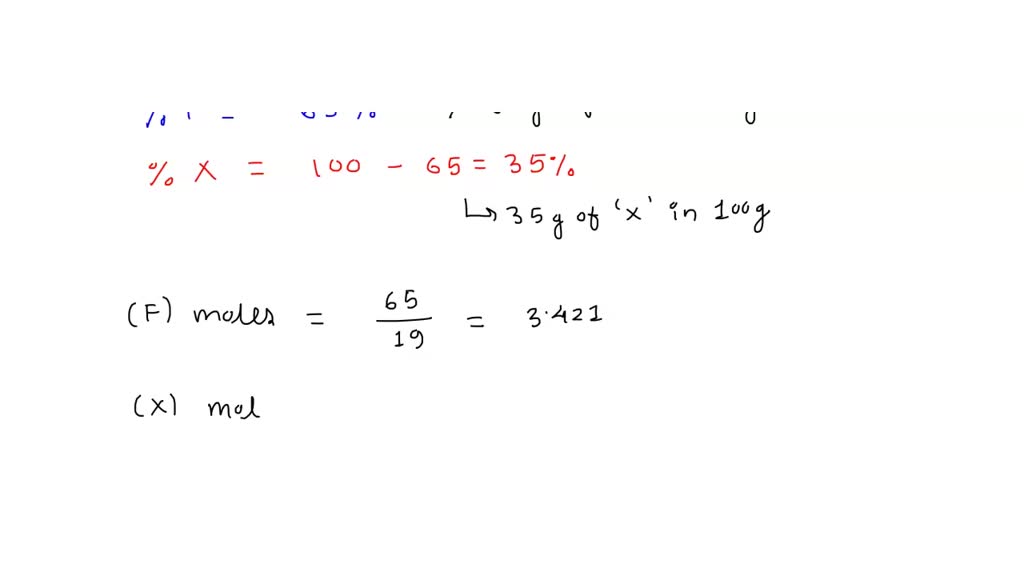 % X = 100 - 65 = 35%
↳ 35g of 'x' in 100g
(F) moles = 65/19 = 3.421
(X) mol